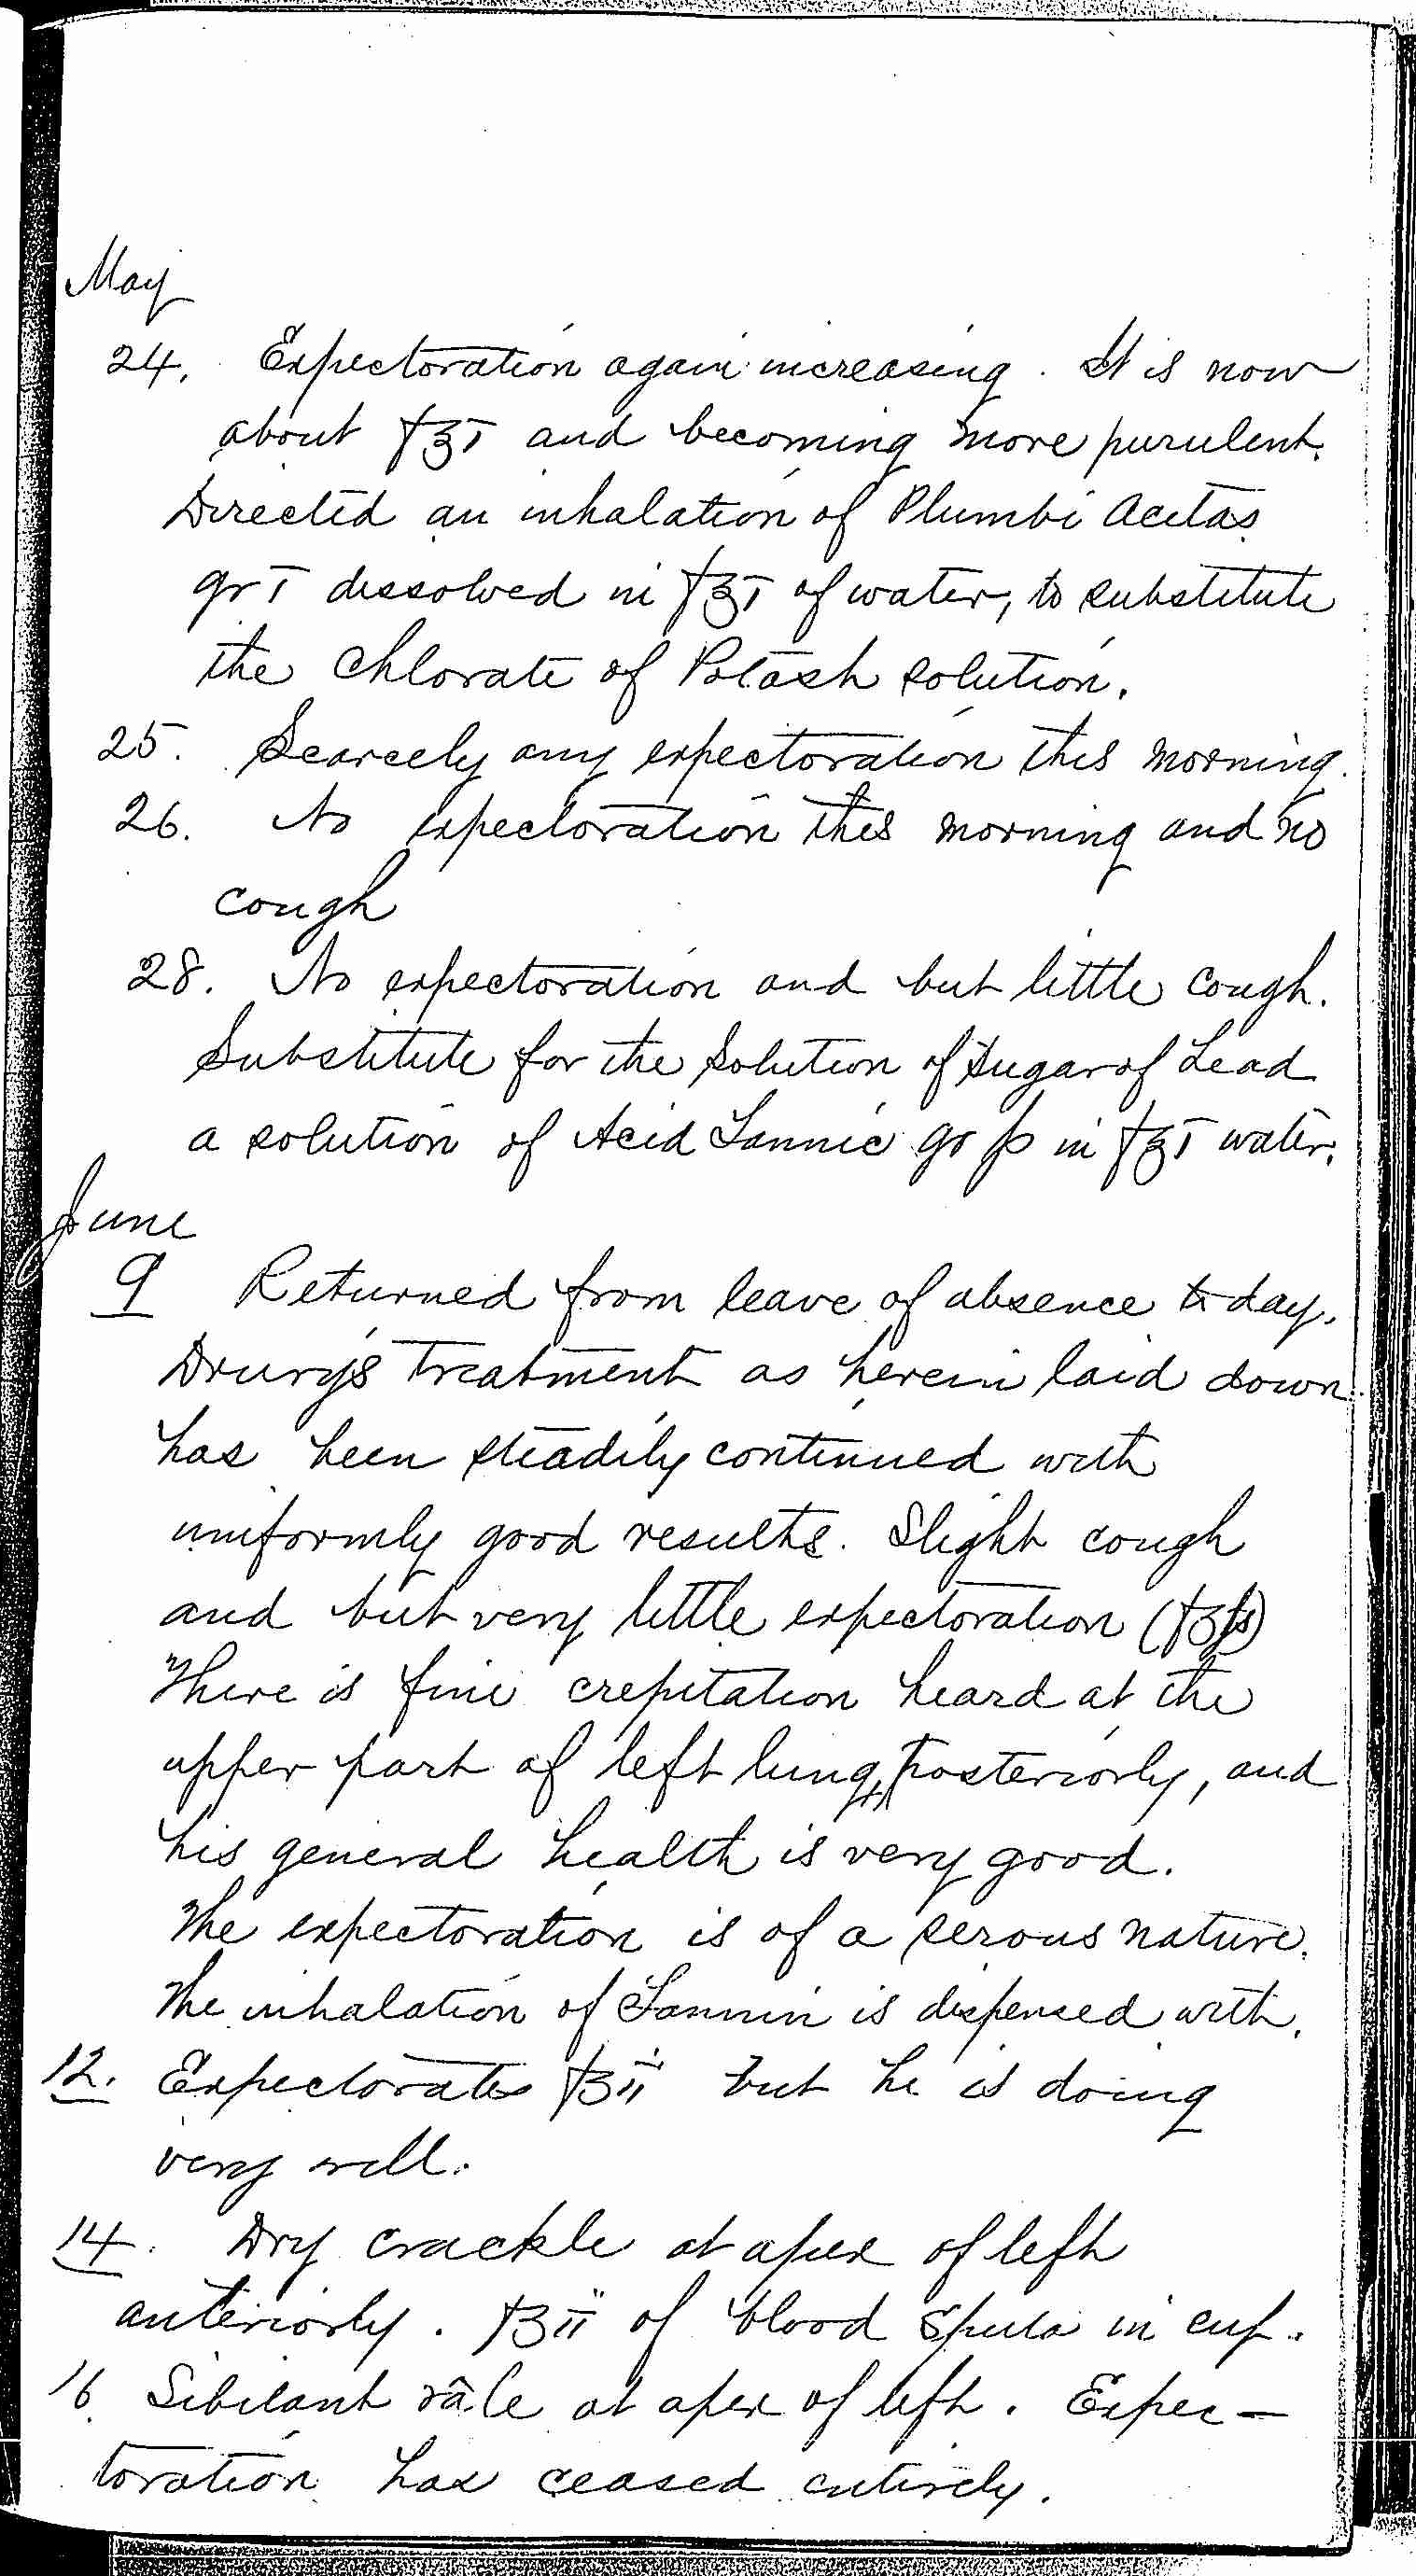 May
24. Expectoration again increasing. It is now
about f℥i and becoming more purulent.
Directed an inhalation of Plumbi Acetas
gr i dissolved in f℥i of water, to substitute
the Chlorate of Potash solution.
25. Scarcely any expectoration this morning.
26. No expectoration this morning and no
cough
28. No expectoration and but little cough.
Substitute for the Solution of Sugar of Lead
a solution of Acid Tannic gr ss in f℥i water.
June
9 Returned from leave of absence to day.
Drury's treatment as herein laid down
has been steadily continued with
uniformly good results. Slight cough
and but very little expectoration (f℥ss)
There is fine crepitation heard at the
upper part of left lung, posteriorly, and
his general health is very good.
The expectoration is of a serous nature.
The inhalation of Tannin is dispensed with.
12. Expectorates fʒii but he is doing
very well.
14. Dry crackle at apex of left
anteriorly. fʒii of blood sputa in cup.
16. Sibilant râle at apex of left. Expec-
toration has ceased entirely.